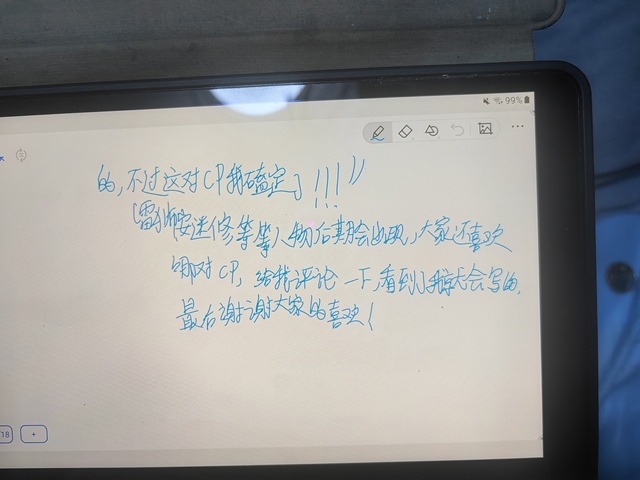 99%
的,不过这对CP我磕定了!!!”
(雷伊安迷修等等人物后期会出现,大家还喜欢
哪对CP,给我评论一下,看到了我就会写的,
最后谢谢大家的喜欢(
18